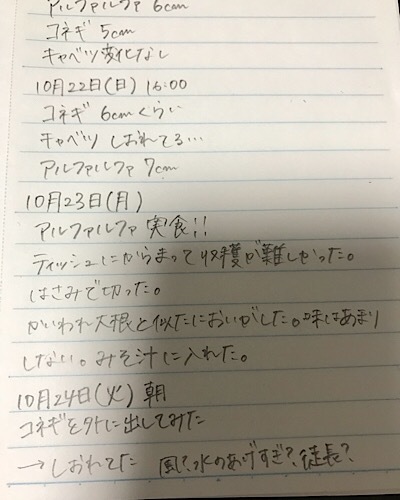 アルファルファ 6cm
コネギ 5cm
キャベツ変化なし
10月22日(日) 16:00
コネギ 6cmくらい
キャベツ しおれてる…
アルファルファ 7cm
10月23日(月)
アルファルファ 実食!!
ティッシュにからまって収穫が難しかった。
はさみで切った。
かいわれ大根と似たにおいがした。味はあまり
しない。みそ汁に入れた。
10月24日(火) 朝
コネギを外に出してみた
→しおれてた 風?水のあげすぎ?徒長?